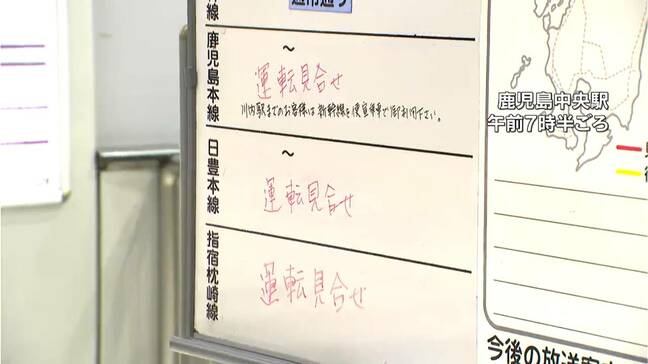 線
通常通り
鹿児島本線
～
運転見合せ
川内駅までのお客様は新幹線を便宜乗車で御利用下さい。
日豊本線
～
運転見合せ
指宿枕崎線
運転見合せ
鹿児島中央駅
午前7時半ごろ
今後の放送案